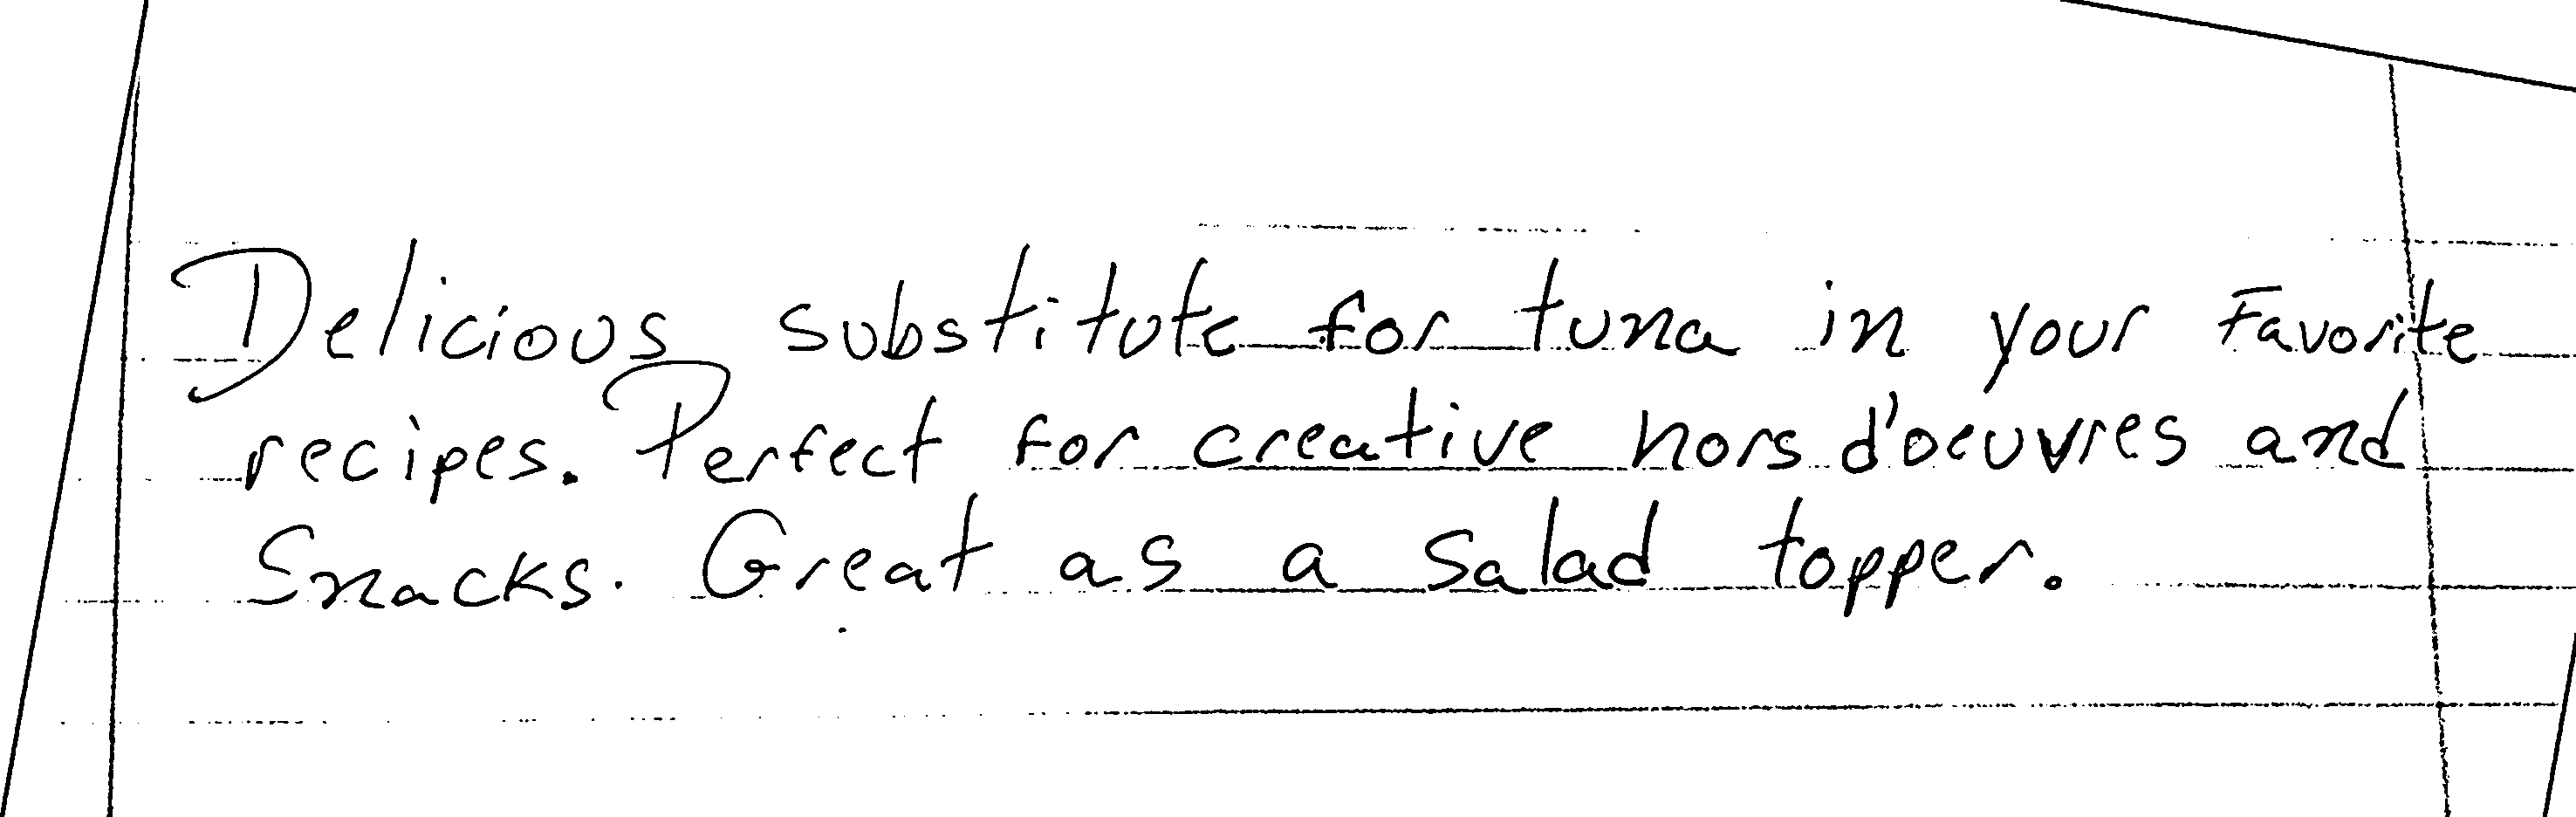 Delicious substitute for tuna in your Favorite
recipes. Perfect for creative hors d'oeuvres and
Snacks. Great as a Salad topper.